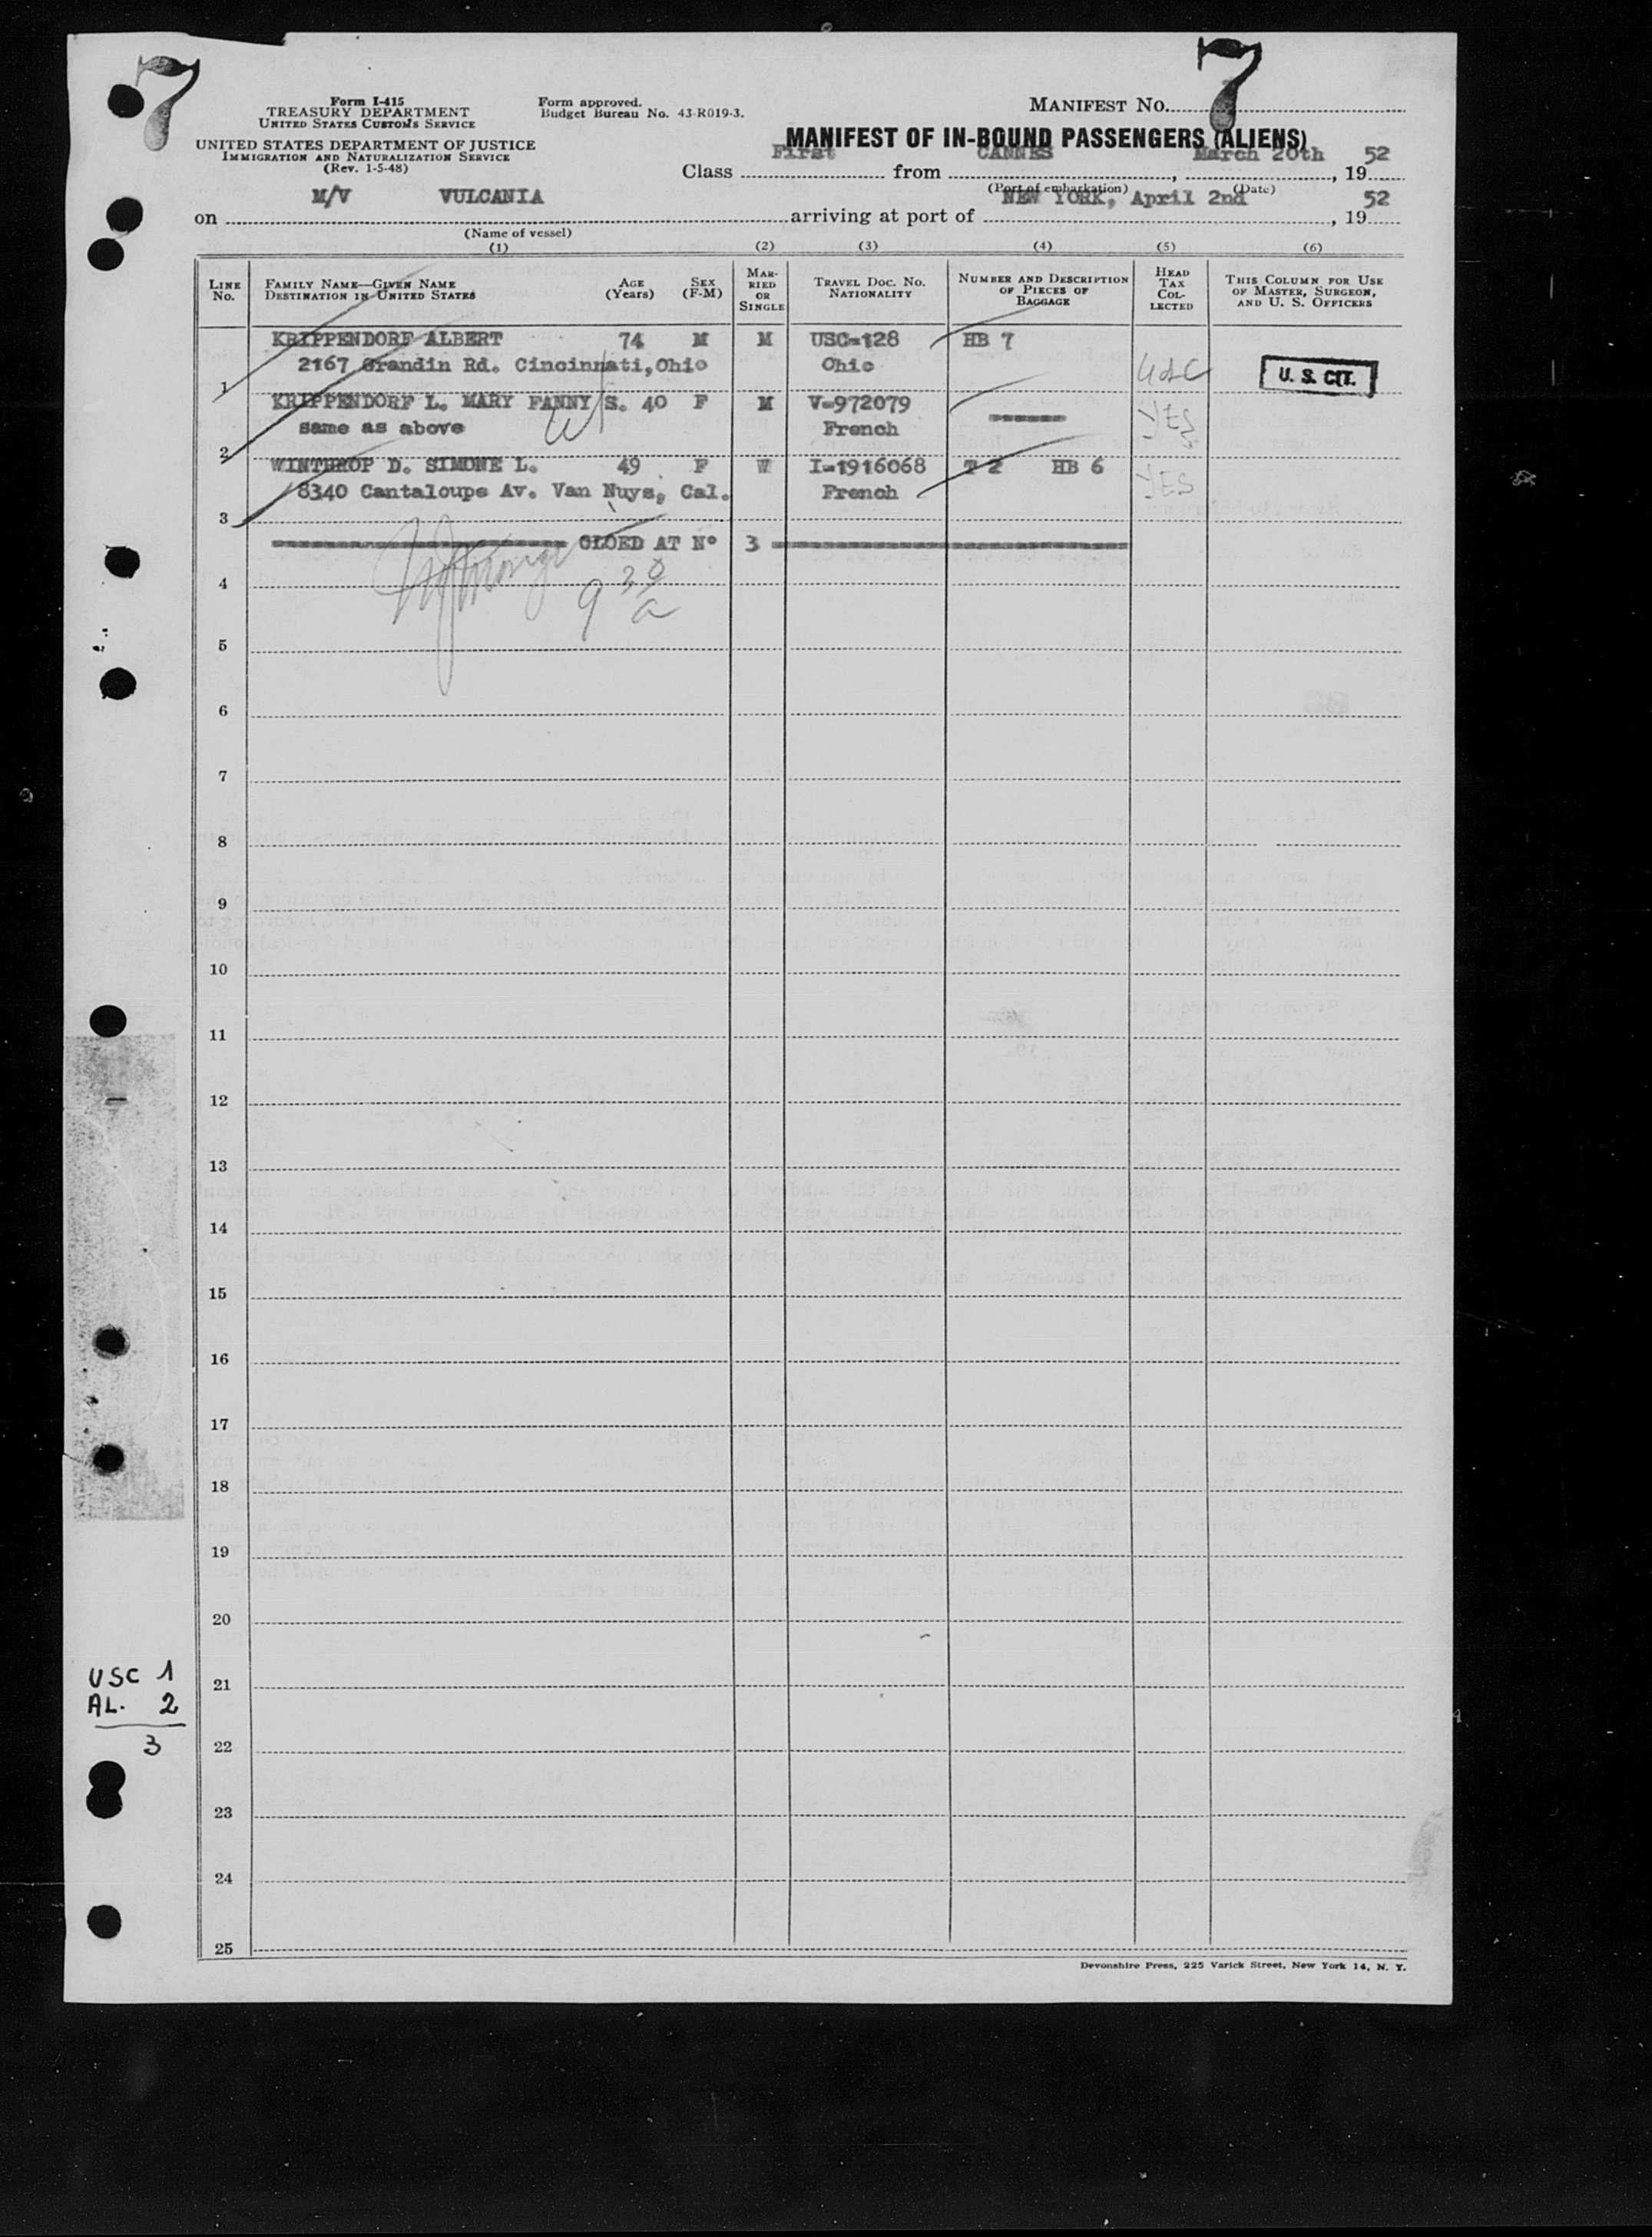 7
7
Form I-415
TREASURY DEPARTMENT
UNITED STATES CUSTOMS SERVICE
UNITED STATES DEPARTMENT OF JUSTICE
IMMIGRATION AND NATURALIZATION SERVICE
(Rev. 1-5-48)
Form approved.
Budget Bureau No. 43-R019-3.
MANIFEST No.
MANIFEST OF IN-BOUND PASSENGERS (ALIENS)
Class First from CANNES, March 20th, 1952
(Port of embarkation) (Date)
on M/V VULCANIA arriving at port of NEW YORK, April 2nd, 1952
(Name of vessel)
(1) (2) (3) (4) (5) (6)
LINE No. FAMILY NAME—GIVEN NAME DESTINATION IN UNITED STATES AGE (Years) SEX (F-M) MARRIED OR SINGLE TRAVEL DOC. NO. NATIONALITY NUMBER AND DESCRIPTION OF PIECES OF BAGGAGE HEAD TAX COLLECTED THIS COLUMN FOR USE OF MASTER, SURGEON, AND U. S. OFFICERS
KRIPPENDORF ALBERT 74 M M USC-128 HB 7
1 2167 Grandin Rd. Cincinnati,Ohio Ohio USC U. S. CIT.
KRIPPENDORF L. MARY FANNY S. 40 F M V-972079 YES
2 same as above French
WINTHROP D. SIMONE L. 49 F W I-1916068 T 2 HB 6 YES
3 8340 Cantaloupe Av. Van Nuys, Cal. French
CLOED AT N° 3
4
9 30 a
5
6
7
8
9
10
11
12
13
14
15
16
17
18
19
20
21
22
23
24
25
USC 1
AL. 2
3
Devonshire Press, 225 Varick Street, New York 14, N. Y.